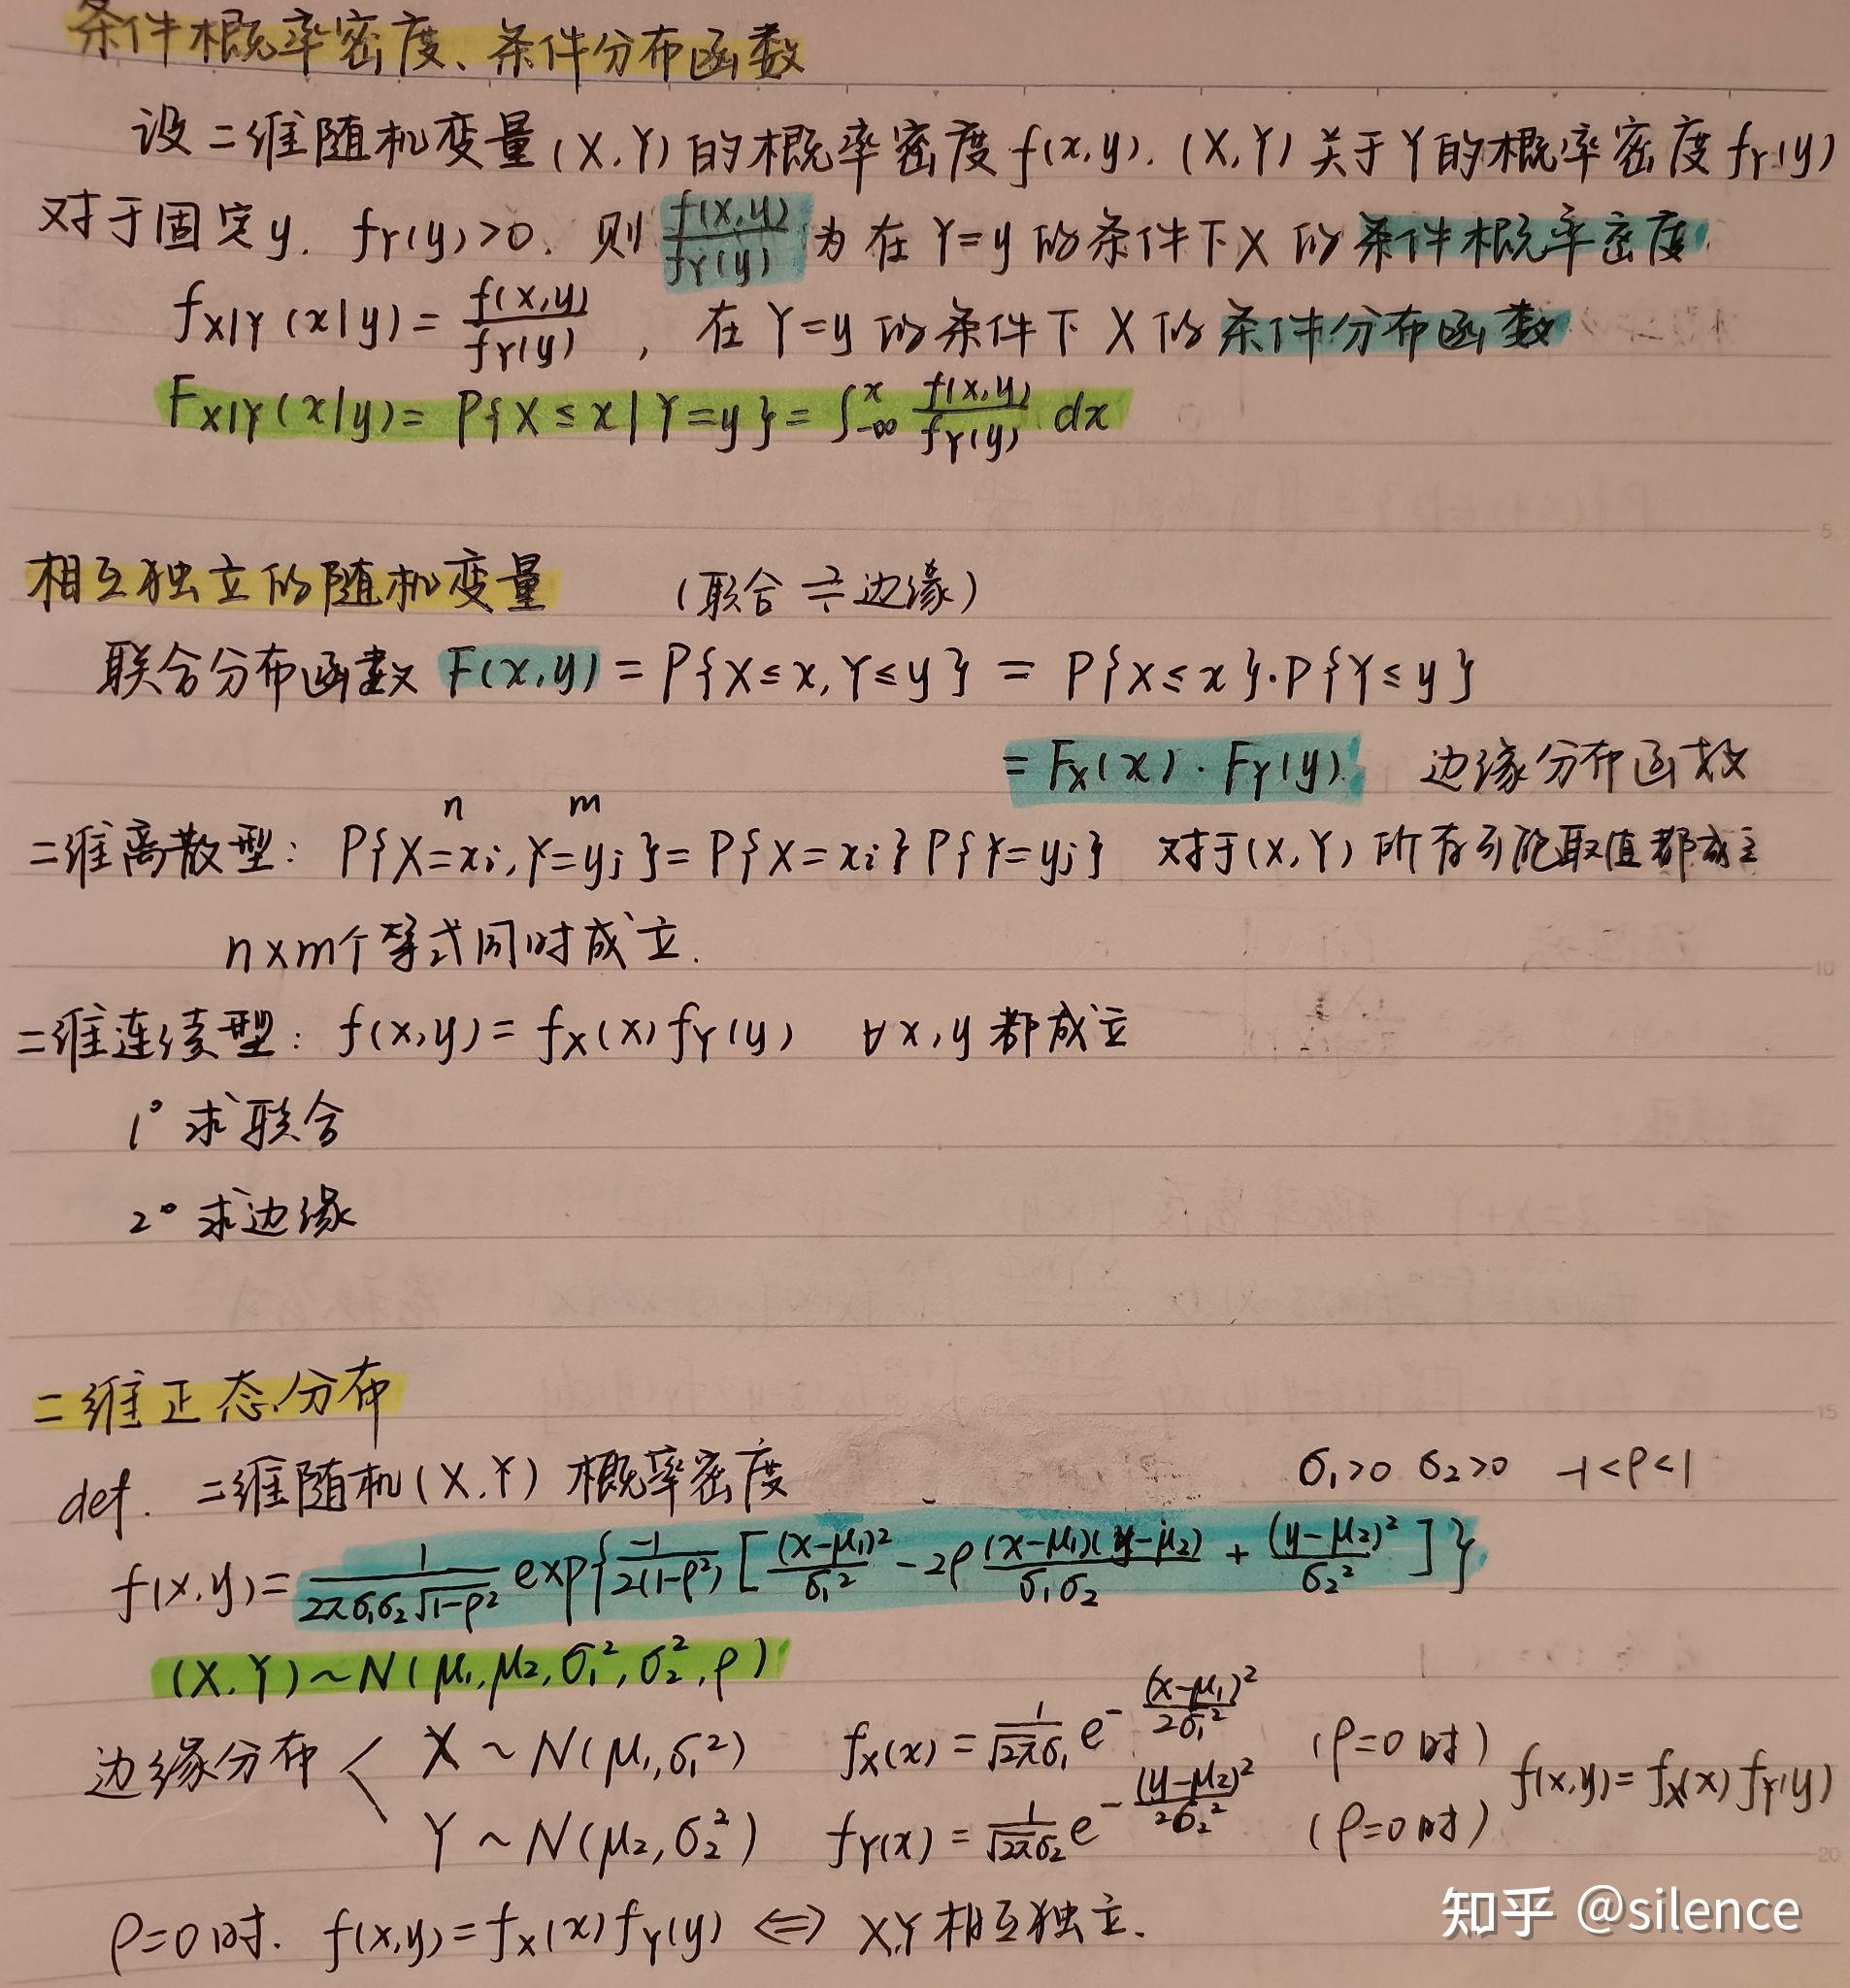 条件概率密度、条件分布函数
设二维随机变量(X,Y)的概率密度f(x,y). (X,Y)关于Y的概率密度f_Y(y)
对于固定y, f_Y(y)>0, 则 f(x,y)/f_Y(y) 为在Y=y的条件下X的条件概率密度
f_{X|Y}(x|y) = f(x,y)/f_Y(y) , 在Y=y的条件下X的条件分布函数
F_{X|Y}(x|y) = P{X≤x|Y=y} = ∫_{-∞}^{x} f(x,y)/f_Y(y) dx
相互独立的随机变量 (联合⇌边缘)
联合分布函数 F(x,y) = P{X≤x, Y≤y} = P{X≤x}·P{Y≤y}
= F_X(x)·F_Y(y). 边缘分布函数
n m
二维离散型: P{X=x_i, Y=y_j} = P{X=x_i}P{Y=y_j} 对于(X,Y)所有可能取值都成立
n×m个等式同时成立.
二维连续型: f(x,y) = f_X(x)f_Y(y) ∀x,y都成立
1° 求联合
2° 求边缘
二维正态分布
def. 二维随机(X,Y)概率密度 σ₁>0 σ₂>0 -1<ρ<1
f(x,y) = 1/(2πσ₁σ₂√(1-ρ²)) exp{-1/(2(1-ρ²)) [(x-μ₁)²/σ₁² - 2ρ (x-μ₁)(y-μ₂)/(σ₁σ₂) + (y-μ₂)²/σ₂²]}
(X,Y)~N(μ₁,μ₂,σ₁²,σ₂²,ρ)
边缘分布 < X~N(μ₁,σ₁²) f_X(x) = 1/(√(2π)σ₁) e^{-(x-μ₁)²/(2σ₁²)} (ρ=0时) f(x,y)=f_X(x)f_Y(y)
Y~N(μ₂,σ₂²) f_Y(x) = 1/(√(2π)σ₂) e^{-(y-μ₂)²/(2σ₂²)} (ρ=0时)
ρ=0时. f(x,y)=f_X(x)f_Y(y) ⇔ X,Y相互独立.
知乎 @silence
5
10
15
20